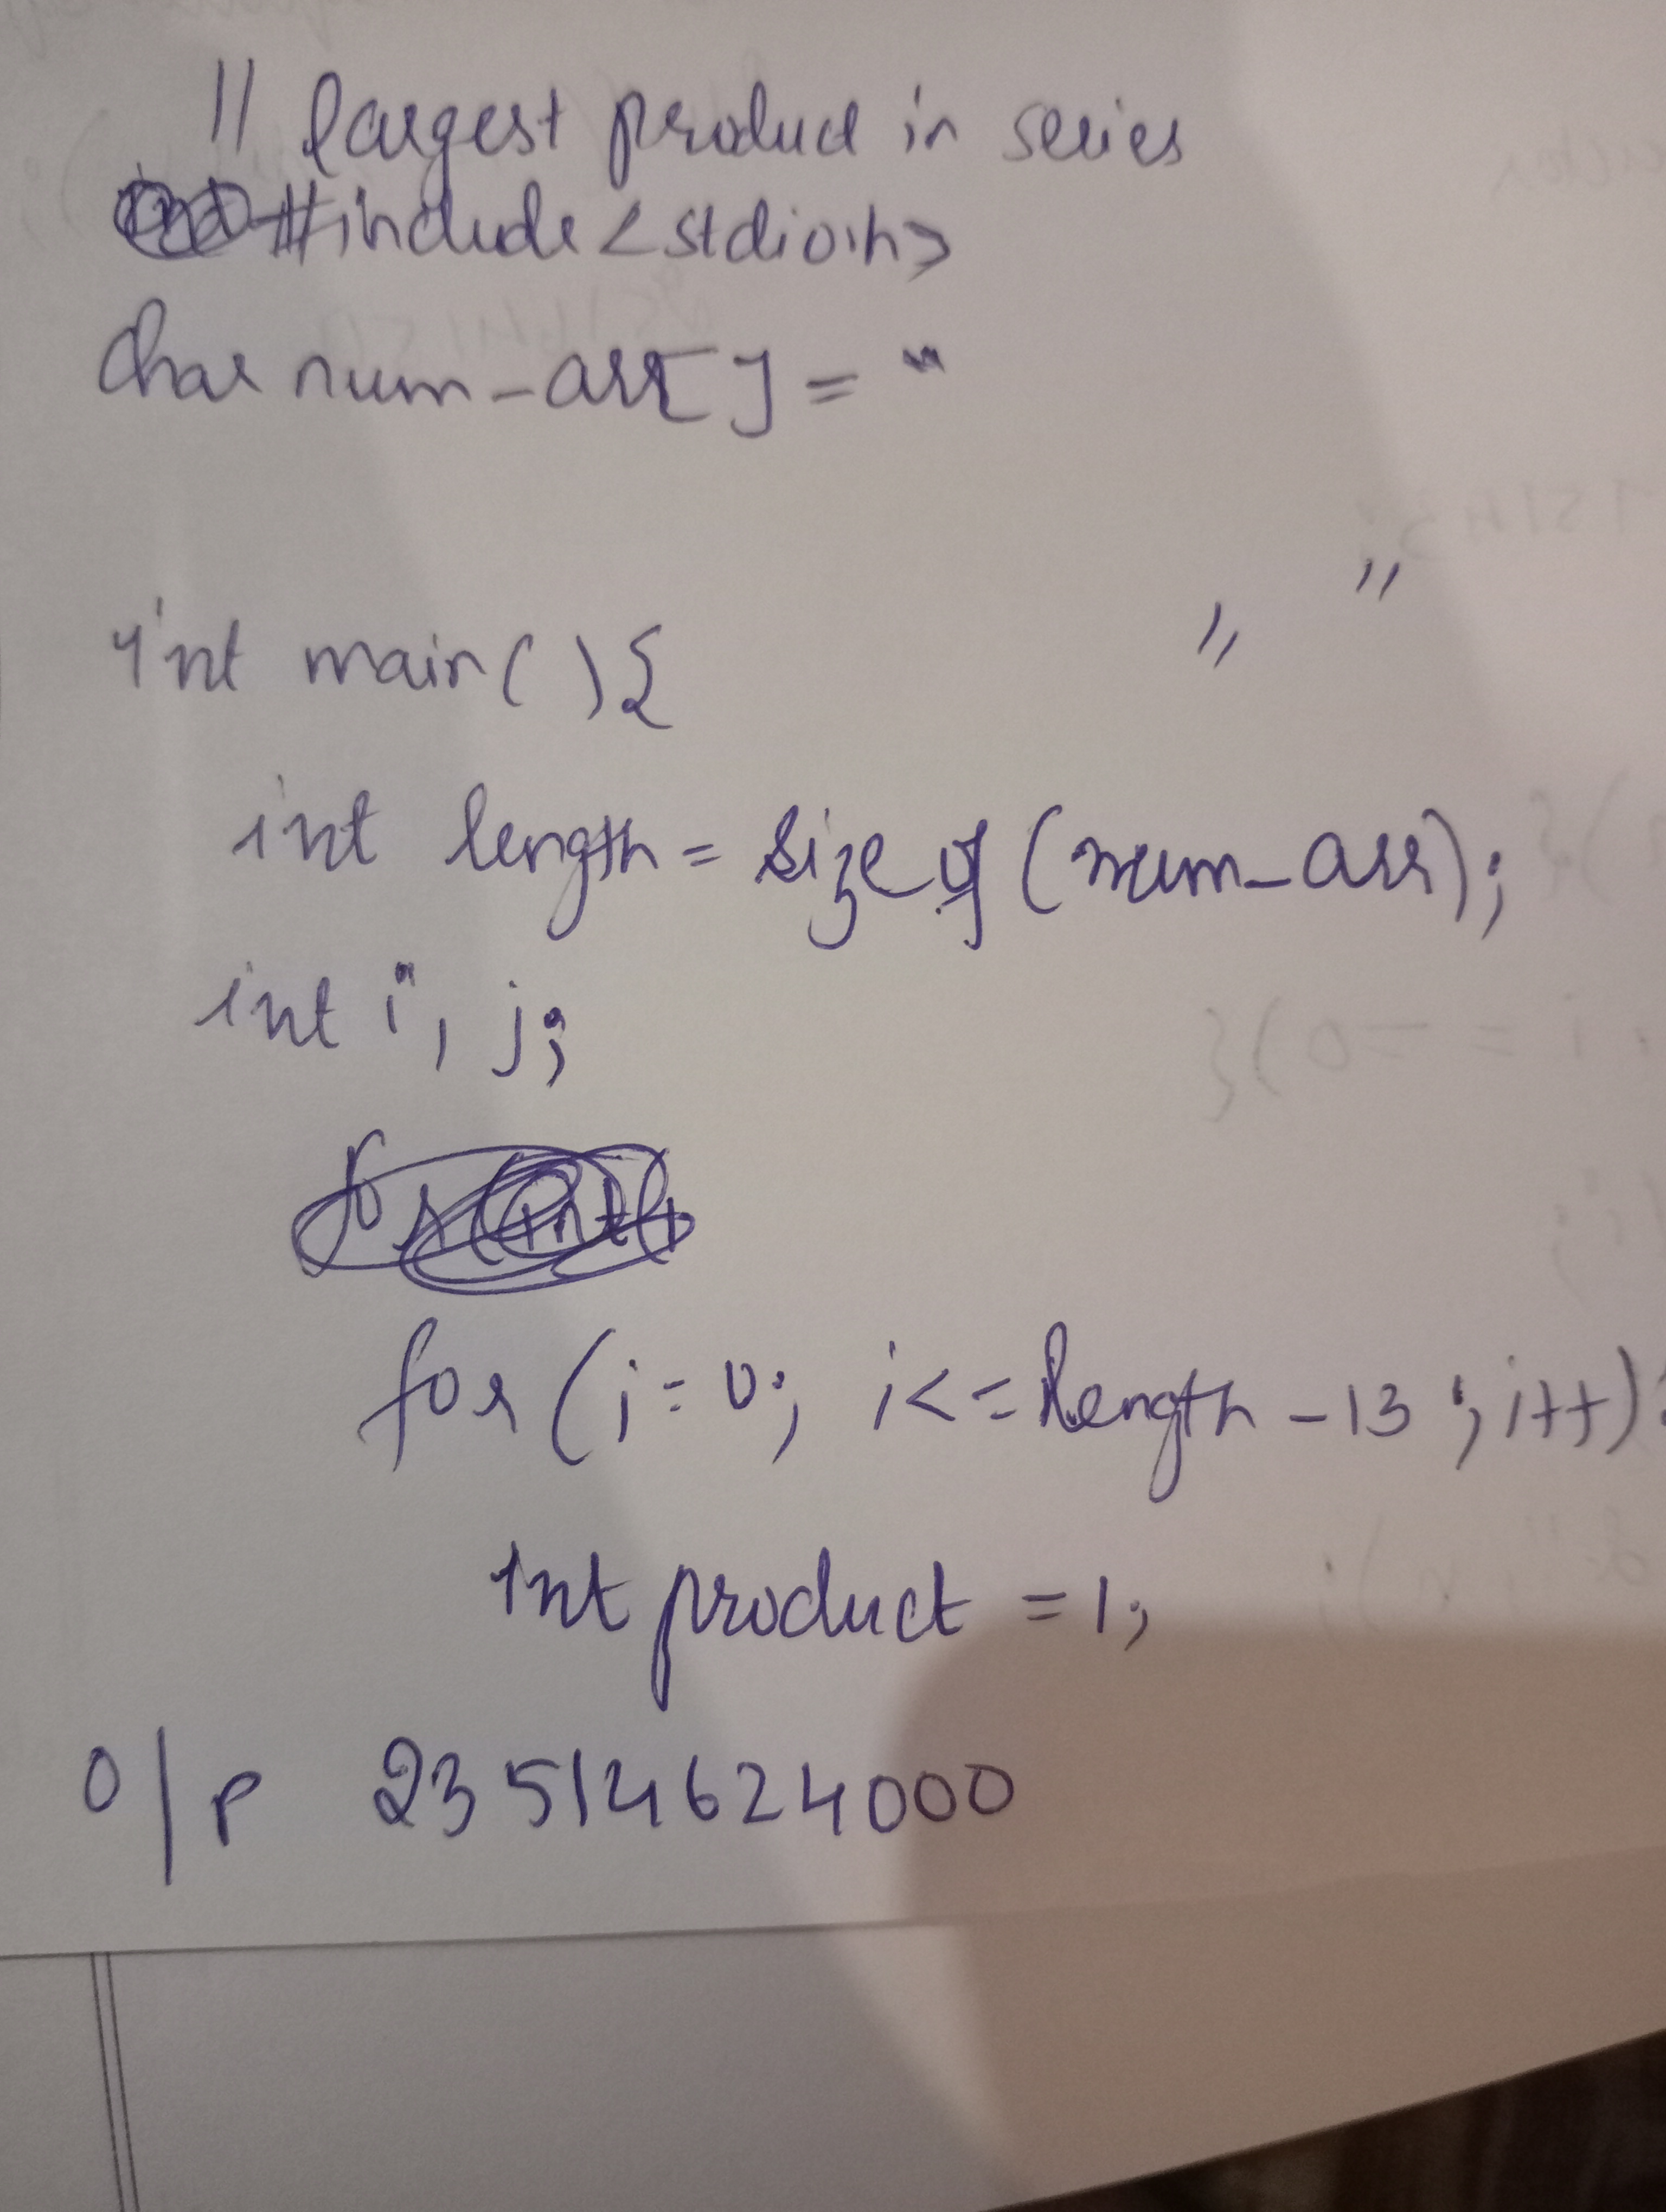 // largest product in series
#include <stdio.h>
char num_arr[] = "
"
"
int main( ){
int length = sizeof(num_arr);
int i, j;
for (i=0; i<=length-13; i++){
int product = 1;
o/p 23514624000